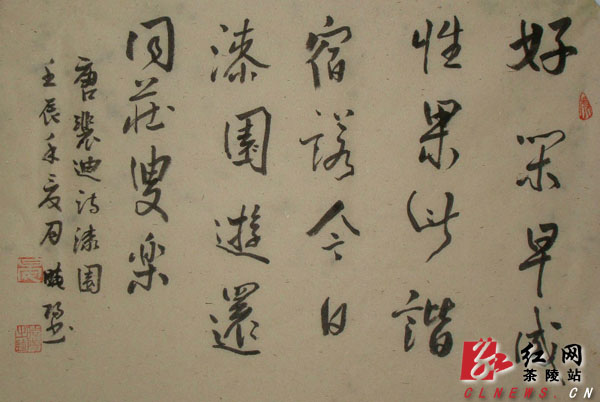 好閑早成
性果此諧
宿諾今日
漆園遊還
同莊叟樂
唐裴迪詩漆園
壬辰年夏月
红网
茶陵站
CLNEWS.CN